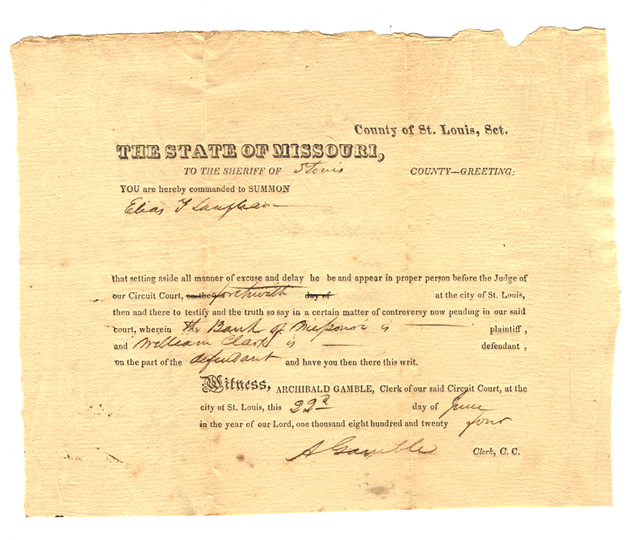 County of St. Louis, Sct.
THE STATE OF MISSOURI,
TO THE SHERIFF OF St Louis COUNTY—GREETING:
YOU are hereby commanded to SUMMON
Elias T Langham
that setting aside all manner of excuse and delay he be and appear in proper person before the Judge of
our Circuit Court, on the forthwith day of at the city of St. Louis,
then and there to testify and the truth so say in a certain matter of controversy now pending in our said
court, wherein The Bank of Missouri is plaintiff,
and William Clark is defendant,
on the part of the defendant and have you then there this writ.
Witness, ARCHIBALD GAMBLE, Clerk of our said Circuit Court, at the
city of St. Louis, this 22d day of June
in the year of our Lord, one thousand eight hundred and twenty four
A Gamble Clerk, C. C.